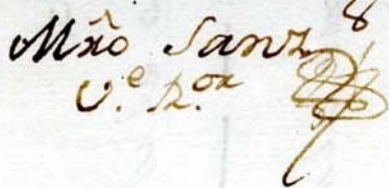 Mrõ Sanz
V.e R.or